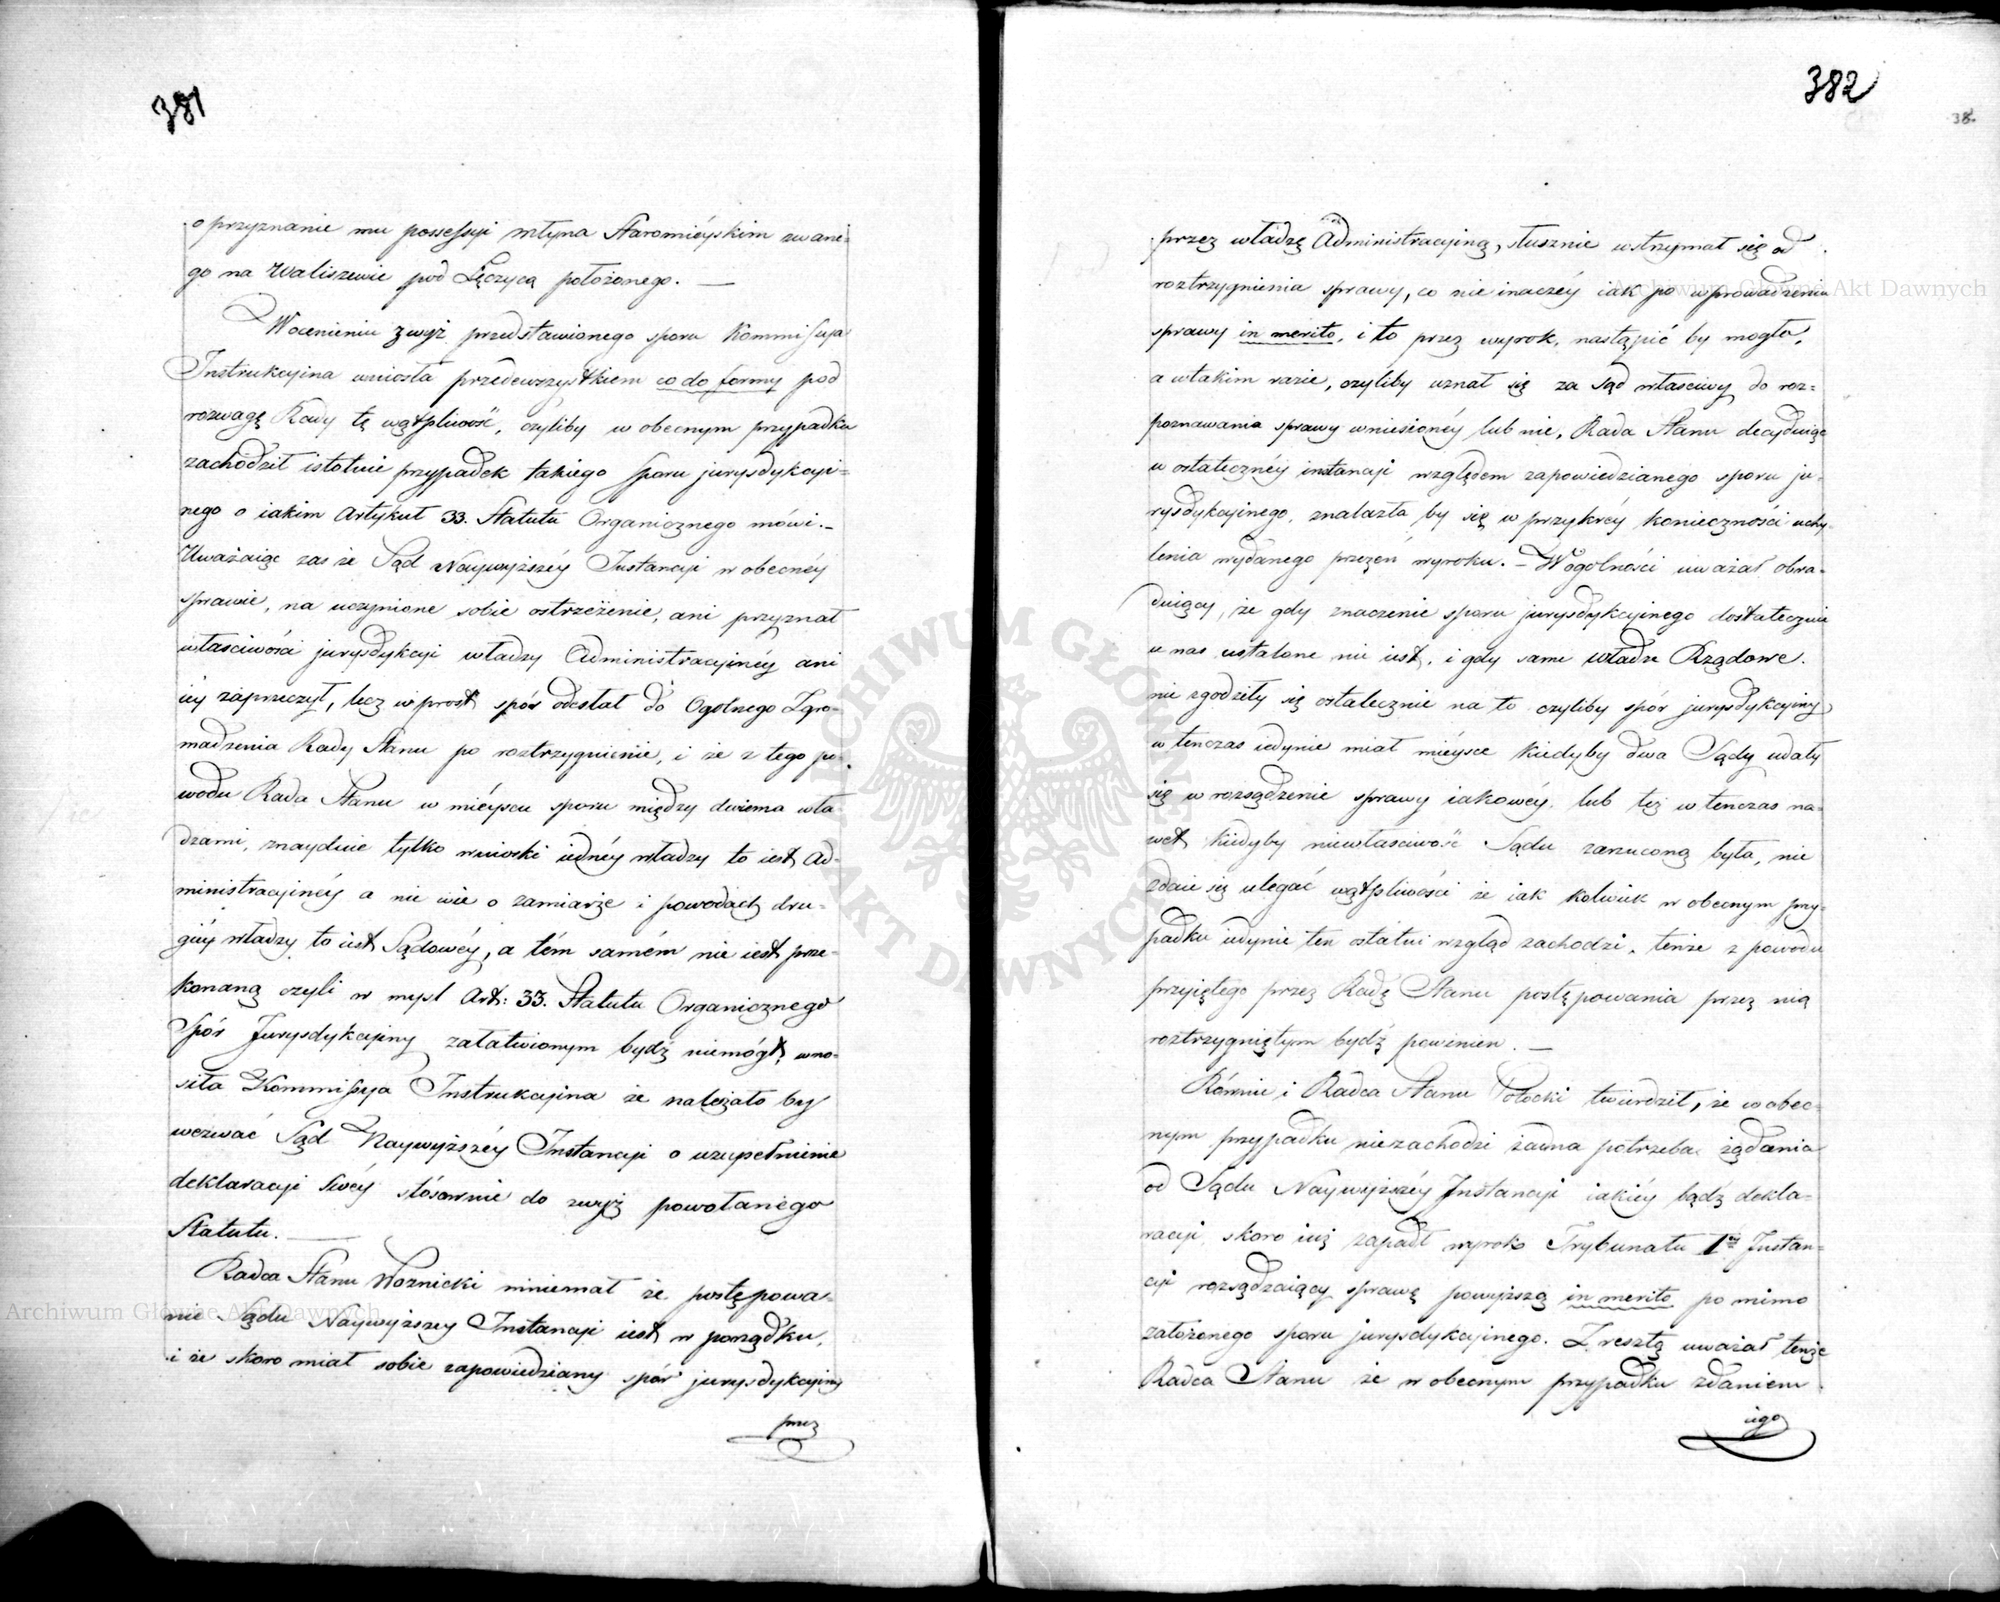 381
o przyznanie mu possessyi młyna Staromieyskim zwane-
go na Waliszewie pod Łęczycą położonego. —
W ocenieniu zwyż przedstawionego sporu Kommissyja
Instrukcyina wniosła przedewszystkiem co do formy pod
rozwagę Rady tę wątpliwość, czyliby w obecnym przypadku
zachodził istotnie przypadek takiego sporu jurysdykcyi=
nego o iakim Artykuł 33. Statutu Organicznego mówi. —
Uważaiąc zaś że Sąd Naywyższéy Instancyi w obecnéy
sprawie, na uczynione sobie ostrzeżenie, ani przyznał
właściwości jurysdykcyi władzy Administracyinéy ani
iéy zaprzeczył, lecz wprost spór odesłał do Ogolnego Zgro-
madzenia Rady Stanu po roztrzygnienie, i że z tego po-
wodu Rada Stanu w mieyscu sporu między dwiema wła-
dzami, znayduie tylko wnioski iednéy władzy to iest Ad-
ministracyinéy a nie wie o zamiarze i powodach dru-
giéy władzy to iest Sądowéy, a tém samém nie iest prze-
konaną czyli w mysl Art: 33. Statutu Organicznego
Spór Jurysdykcyiny załatwionym bydź niemógł, wno-
siła Kommissyja Instrukcyina że należało by
wezwać Sąd Naywyższéy Instancyi o uzupełnienie
deklaracyi swéy stósownie do zwyż powołanego
Statutu. —
Radca Stanu Woznicki mniemał że postępowa-
nie Sądu Naywyższey Instancyi iest w porządku,
i że skoro miał sobie zapowiedziany spór jurysdykcyiny
przez
382
38.
przez władzę Administracyiną, słusznie wstrzymał się od
roztrzygnienia sprawy, co nie inaczéy iak po wprowadzeniu
sprawy in merito, i to przez wyrok, nastąpić by mogło,
a w takim razie, czyliby uznał się za Sąd właściwy do roz=
poznawania sprawy wniesionéy lub nie, Rada Stanu decyduiąc
w ostatecznéy instancyi względem zapowiedzianego sporu ju-
rysdykcyinego, znalazła by się w przykréy konieczności uchy-
lenia wydanego przezeń wyroku. — W ogolności uważał obra-
duiący, że gdy znaczenie sporu jurysdykcyinego dostatecznie
u nas ustalone nie iest, i gdy same władze Rządowe
nie zgodziły się ostatecznie na to czyliby spór jurysdykcyiny
w tenczas iedynie miał miéysce kiedyby dwa Sądy udały
się w rozsądzenie sprawy iakowéy, lub téż w tenczas na-
wet kiedyby niewłasciwość Sądu zarzuconą była, nie
zdaie się ulegać wątpliwości że iak kolwiek w obecnym przy-
padku iedynie ten ostatni wzgląd zachodzi, tenże z powodu
przyiętego przez Radę Stanu postępowania przez nią
roztrzygniętym bydź powinien. —
Równie i Radca Stanu Potocki twierdził, że w obec-
nym przypadku niezachodzi żadna potrzeba żądania
od Sądu Naywyższéy Instancyi iakiéy bądź dekla-
racyi, skoro iuż zapadł wyrok Trybunału 1éy Instan-
cyi rozsądzaiący sprawę powyższą in merito pomimo
założonego sporu jurysdykcyinego. Z resztą uważał tenże
Radca Stanu że w obecnym przypadku zdaniem
iego
Archiwum Główne Akt Dawnych
Archiwum Główne Akt Dawnych
ARCHIWUM GŁÓWNE AKT DAWNYCH